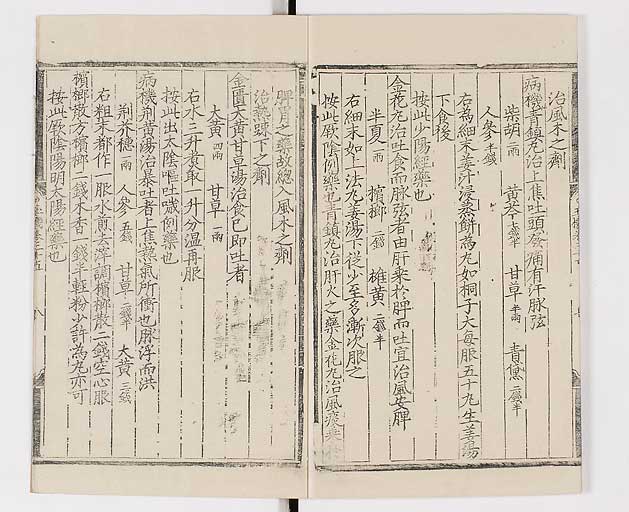 治風木之劑
病機青鎮丸治上焦吐頭發痛有汗脉弦
柴胡二兩 黃芩七錢半 甘草半兩 青黛二錢半
人參五錢
右為細末姜汁浸蒸餅為丸如桐子大每服五十丸生姜湯
下食後
按此少陽經藥也
金花丸治吐食而脉弦者由肝乘於脾而吐宜治風安脾
半夏一兩 檳榔二錢 雄黃一錢半
右細末如上法丸姜湯下從少至多漸次服之
按此厥陰例藥也青鎮丸治肝火之藥金花丸治風痰
脾胃之藥故總入風木之劑
治熱 下之劑
金匱大黃甘草湯治食已即吐者
大黃四兩 甘草一兩
右水三升煮取一升分溫再服
按此出太陰嘔吐噦例藥也
病機荆黃湯治暴吐者上焦熱氣所衝也脉浮而洪
荆芥穗一兩 人參五錢 甘草二錢半 大黃三錢
右粗末都作一服水煎去滓調檳榔散二錢空心服
檳榔散方檳榔二錢木香一錢半輕粉少許為丸亦可
按此厥陰陽明太陽經藥也